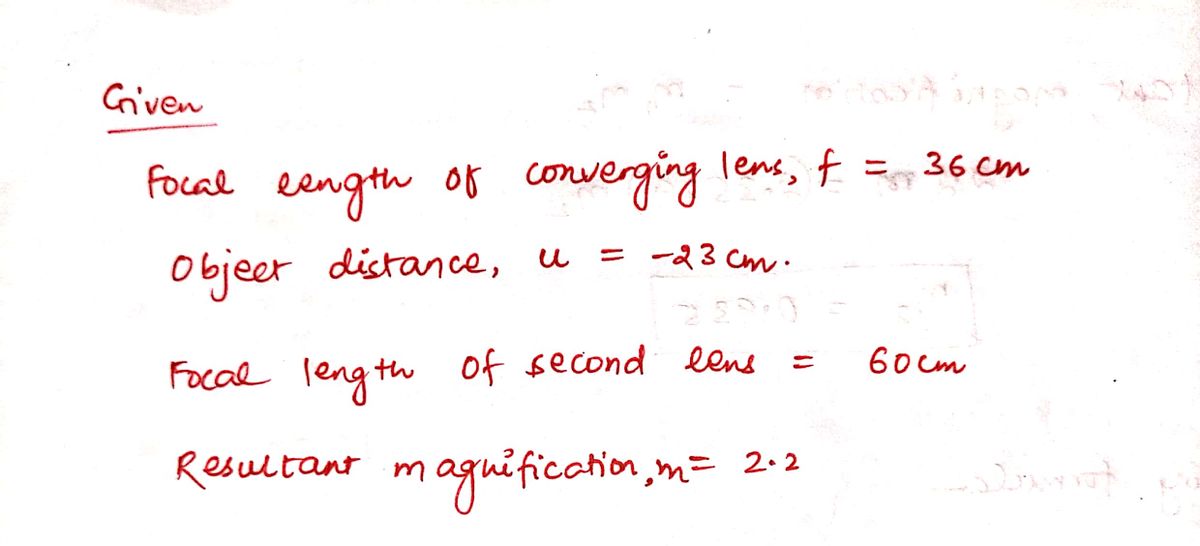 Given
Focal length of converging lens, f = 36 cm
Object distance, u = -23 cm.
Focal length of second lens = 60 cm
Resultant magnification, m = 2.2